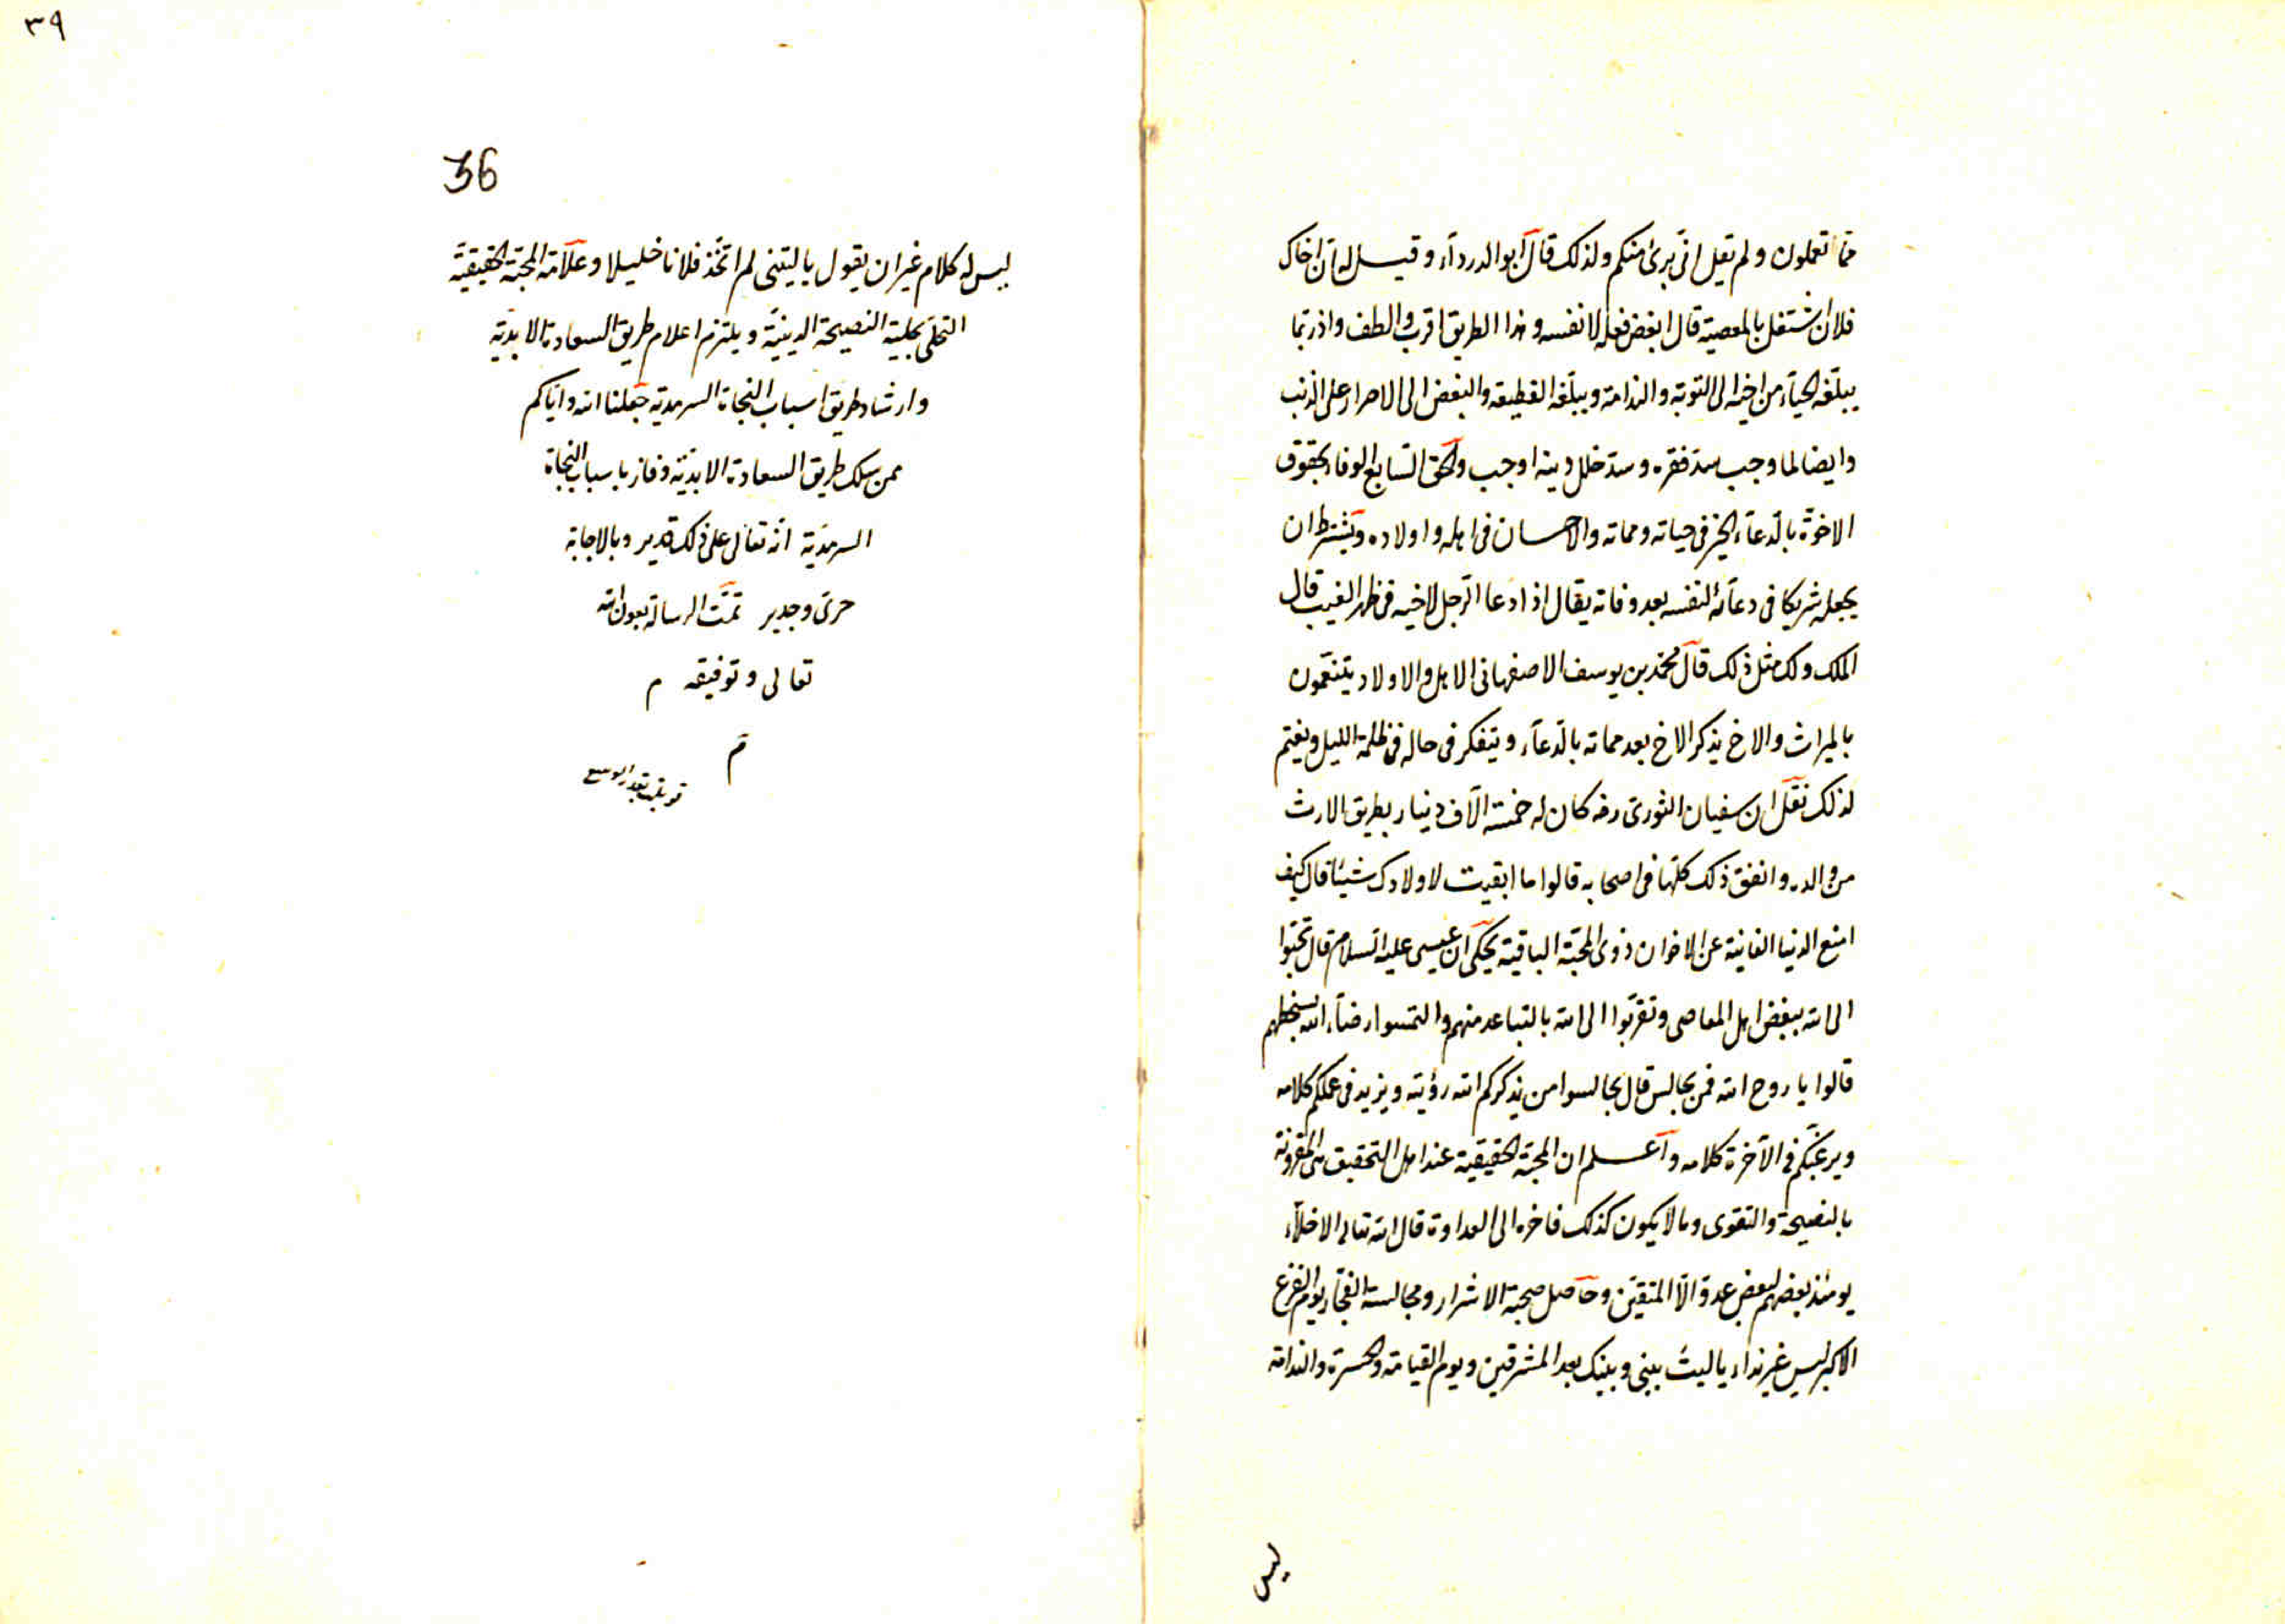 مما تعملون ولم تقل انی بریٔ منكم ولذلك قال ابو الدرداء وقيل له ان اخاك
فلان اشتغل بالمعصية قال ابغض فعله لا نفسه وهذا الطريق اقرب والطف واذ ربما
يبلّغه الحياء من اخيه الى التوبة والندامة ويبلّغه القطيعة والبغض الى الاصرار على الذنب
وايضا لما وجب سد فقره وسد خلل دينه اوجب والحق السابع الوفاء بحقوق
الاخوة بالدعاء الخير فى حياته ومماته والاحسان فى اهله واولاده ويشترط ان
يجعله شريكا فى دعائه لنفسه بعد وفاته يقال اذا دعا الرجل لاخيه فى ظهر الغيب قال
الملك ولك مثل ذلك قال محمد بن يوسف الاصفهانى الاهل والاولاد يتنعمون
بالميراث والاخ يذكر الاخ بعد مماته بالدعاء ويتفكر فى حاله فى ظلمة الليل ويغتم
لذلك نقل ان سفيان الثورى رضه كان له خمسة الآف دينار بطريق الارث
من والده وانفق ذلك كلها فى اصحابه قالوا ما ابقيت لاولادك شيئا قال كيف
امنع الدنيا الفانية عن الاخوان ذوى المحبة الباقية يحكى ان عيسى عليه السلام قال تحببوا
الى الله ببغض اهل المعاصى وتقربوا الى الله بالتباعد منهم والتمسوا رضاء الله بسخطهم
قالوا يا روح الله فمن نجالس قال جالسوا من يذكركم الله رؤيته ويزيد فى عملكم كلامه
ويرغبكم فى الآخرة كلامه واعلم ان المحبة الحقيقية عند اهل التحقيق هى المقرونة
بالنصيحة والتقوى وما لا يكون كذلك فاخره الى العداوة قال الله تعالى الاخلاء
يومئذ بعضهم لبعض عدو الا المتقين وحاصل صحبة الاشرار ومجالسة الفجّار يوم الفزع
الاكبر ليس غير نداء يا ليت بينى وبينك بعد المشرقين ويوم القيامة والحسرة والندامة
ليس
٣٩
36
ليس له كلام غير ان يقول يا ليتنى لم اتخذ فلانا خليلا وعلامة المحبة الحقيقية
التحلّى بحلية النصيحة الدينية ويلتزم اعلام طريق السعادة الابدية
وارشاد طريق اسباب النجاة السرمدية جعلنا الله واياكم
ممن سلك طريق السعادة الابدية وفاز باسباب النجاة
السرمدية انه تعالى على ذلك قدير وبالاجابة
حرى وجدير تمّت الرسالة بعون الله
تعالى وتوفيقه م
م
قوبلت بقدر الوسع